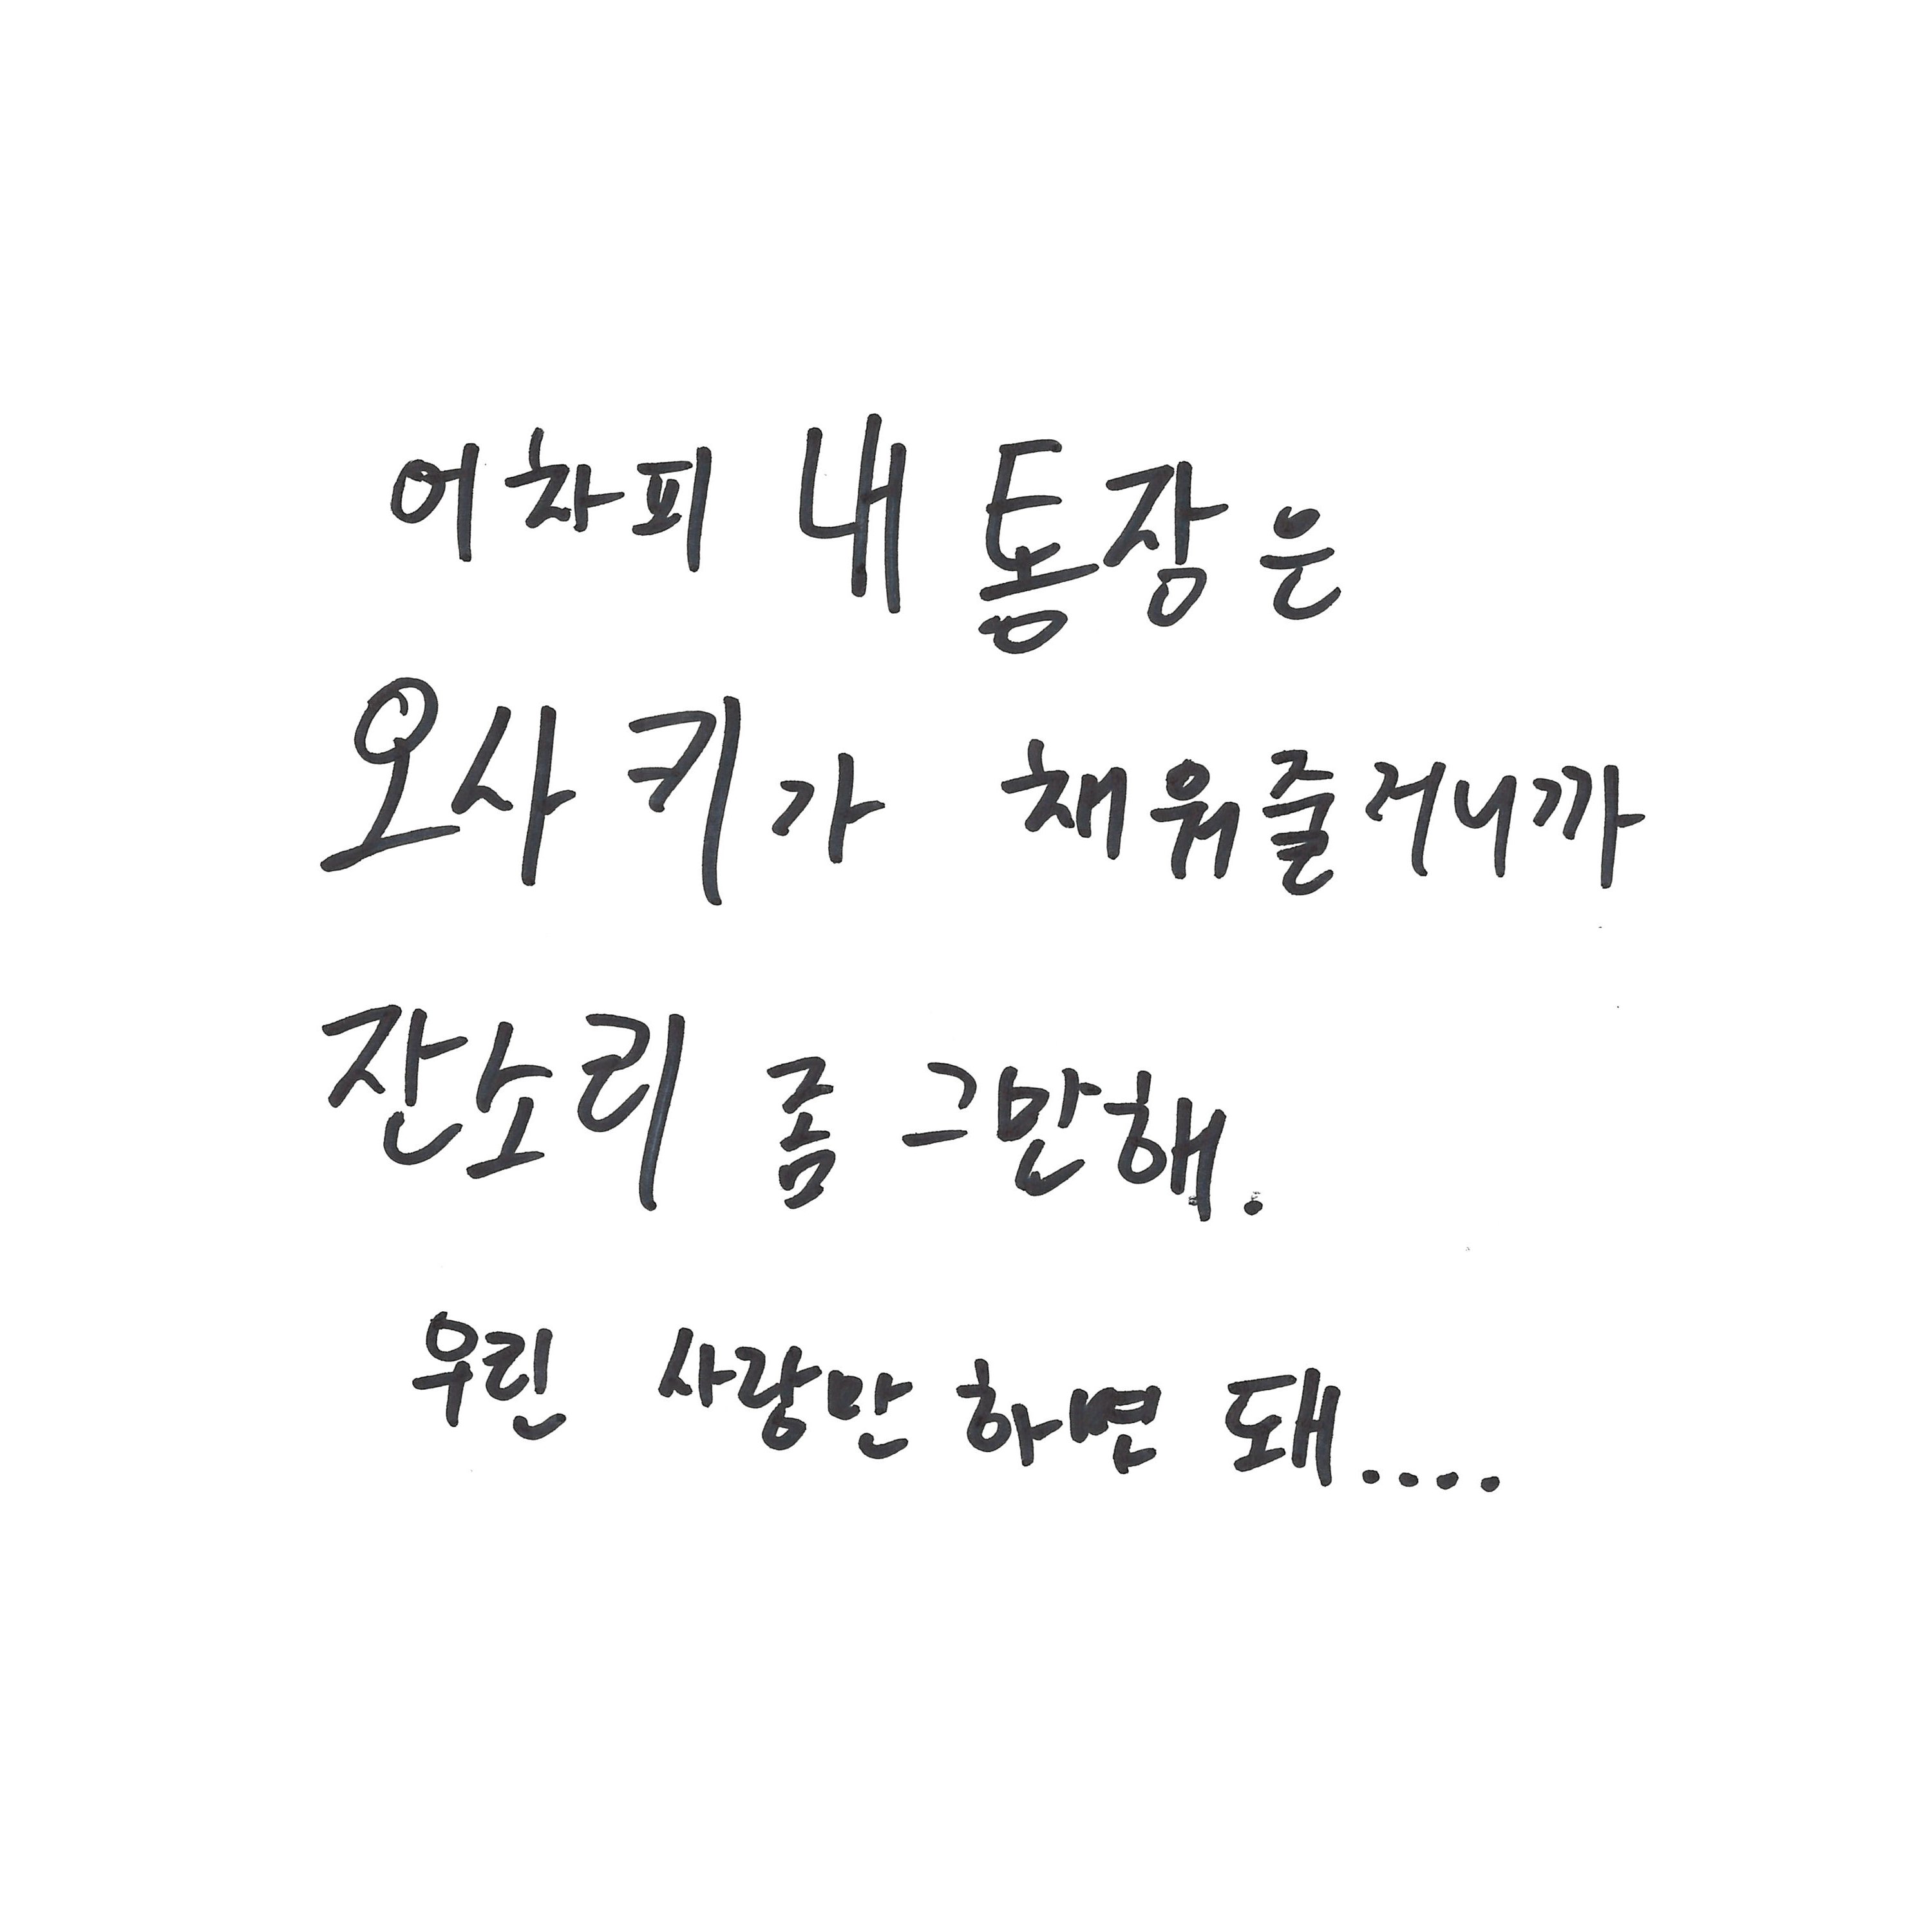 어차피 내 통장은
오사키가 채워줄거니까
잔소리 좀 그만해.
우린 사랑만 하면 돼....